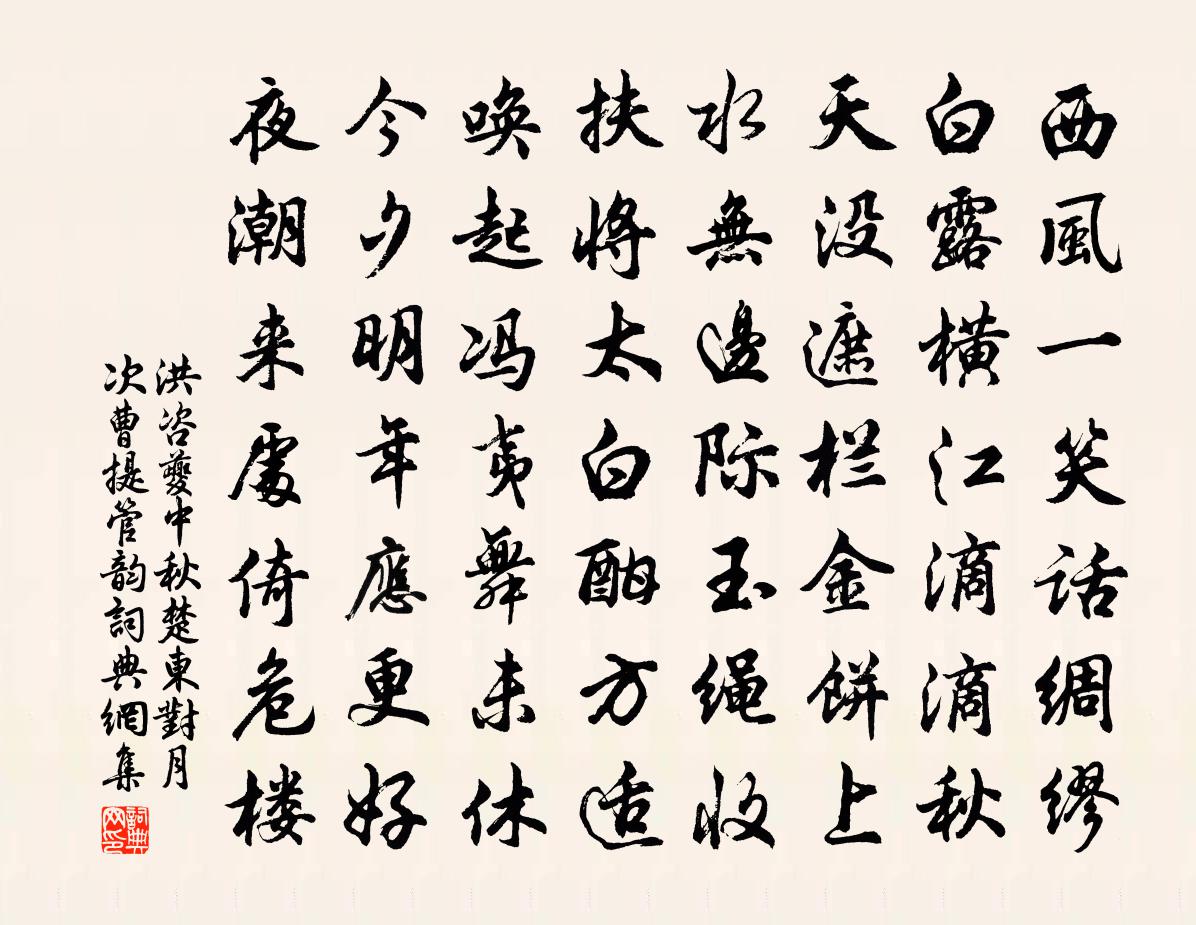 西風一笑话綢繆
白露橫江滴滴秋
天没遮栏金餅上
水無邊际玉繩收
扶將太白酣方适
唤起冯夷舞未休
今夕明年應更好
夜潮来處倚危楼
洪咨夔中秋楚東對月
次曹提管韵詞典網集
詞典网印